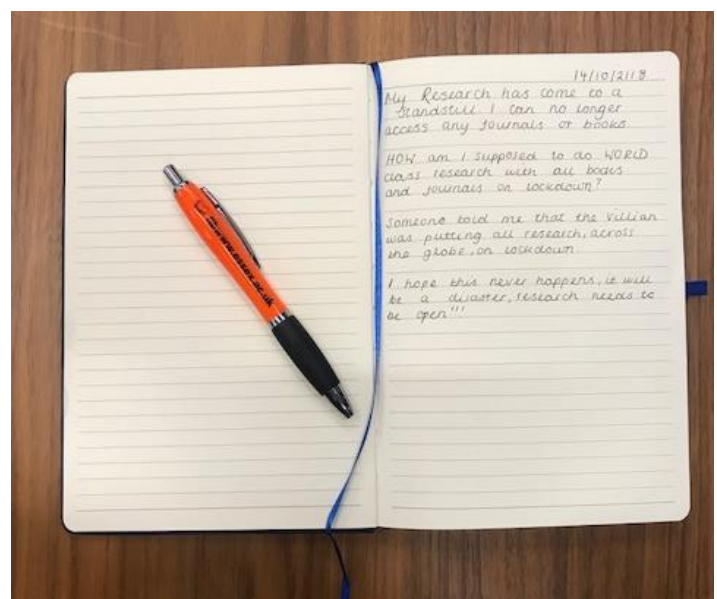 www.essex.ac.uk
14/10/2118
My Research has come to a
standstill. I can no longer
access any journals or books.
HOW am I supposed to do WORLD
class research with all books
and journals on lockdown?
Someone told me that the Villian
was putting all research, across
the globe, on lockdown.
I hope this never happens, it will
be a disaster, research needs to
be open!!!